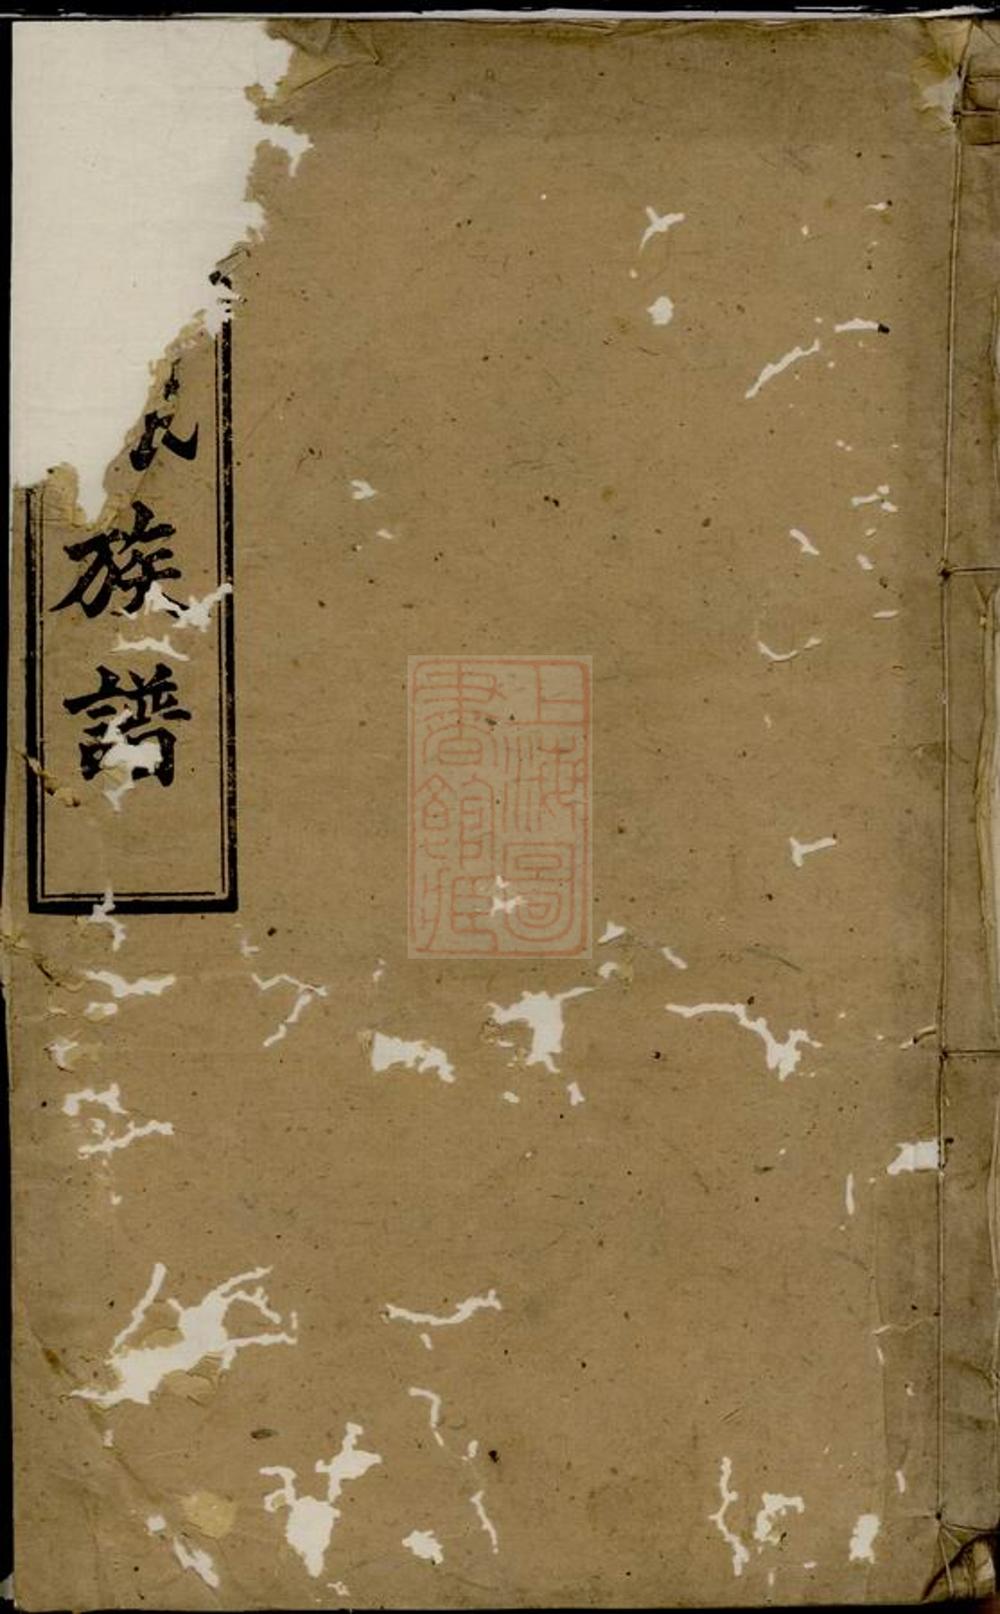 氏族譜
上海圖書館藏